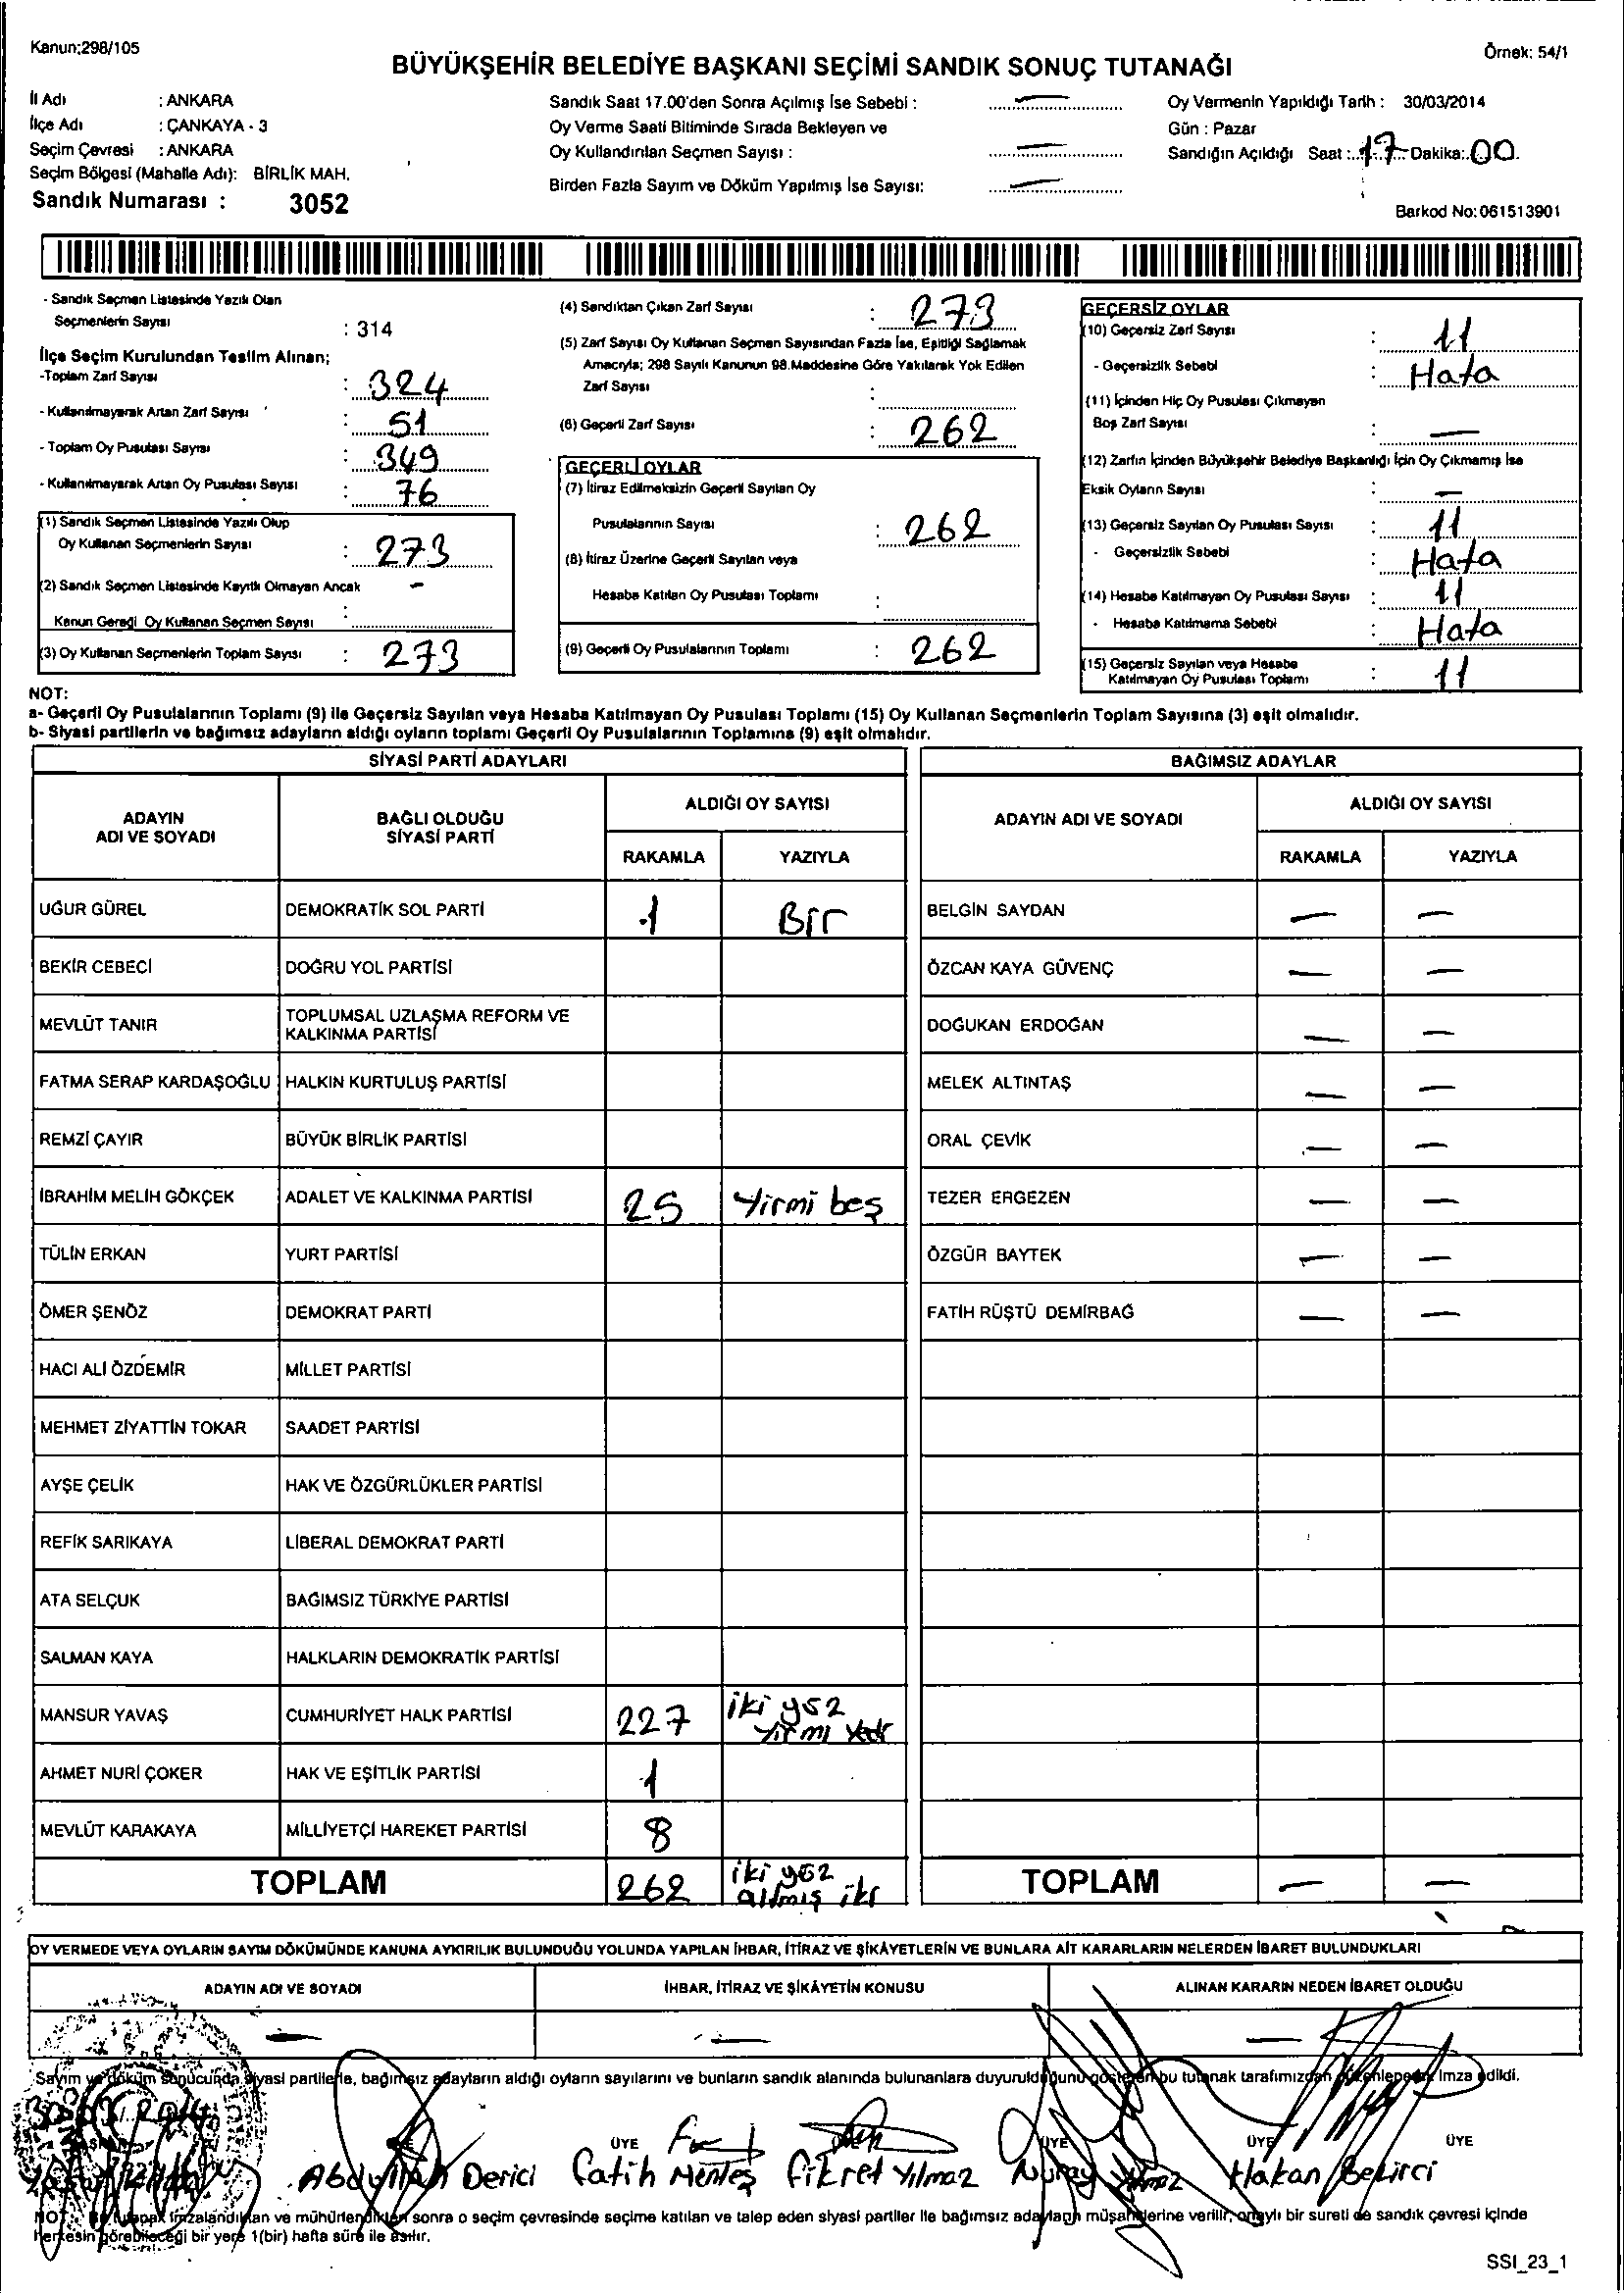 Kanun;298/105
Örnek: 54/1
BÜYÜKŞEHİR BELEDİYE BAŞKANI SEÇİMİ SANDIK SONUÇ TUTANAĞI
İl Adı : ANKARA
İlçe Adı : ÇANKAYA - 3
Seçim Çevresi : ANKARA
Seçim Bölgesi (Mahalle Adı): BİRLİK MAH.
Sandık Numarası : 3052
Sandık Saat 17.00'den Sonra Açılmış İse Sebebi : —
Oy Verme Saati Bitiminde Sırada Bekleyen ve
Oy Kullandırılan Seçmen Sayısı : —
Birden Fazla Sayım ve Döküm Yapılmış İse Sayısı: —
Oy Vermenin Yapıldığı Tarih : 30/03/2014
Gün : Pazar
Sandığın Açıldığı Saat : 17 Dakika: 00
Barkod No:061513901
- Sandık Seçmen Listesinde Yazılı Olan
Seçmenlerin Sayısı : 314
İlçe Seçim Kurulundan Teslim Alınan;
-Toplam Zarf Sayısı : 324
- Kullanılmayarak Artan Zarf Sayısı : 51
- Toplam Oy Pusulası Sayısı : 349
- Kullanılmayarak Artan Oy Pusulası Sayısı : 76
(1) Sandık Seçmen Listesinde Yazılı Olup
Oy Kullanan Seçmenlerin Sayısı : 273
(2) Sandık Seçmen Listesinde Kayıtlı Olmayan Ancak -
Kanun Gereği Oy Kullanan Seçmen Sayısı :
(3) Oy Kullanan Seçmenlerin Toplam Sayısı : 273
(4) Sandıktan Çıkan Zarf Sayısı : 273
(5) Zarf Sayısı Oy Kullanan Seçmen Sayısından Fazla İse, Eşitliği Sağlamak
Amacıyla; 298 Sayılı Kanunun 98.Maddesine Göre Yakılarak Yok Edilen
Zarf Sayısı :
(6) Geçerli Zarf Sayısı : 262
GEÇERLİ OYLAR
(7) İtiraz Edilmeksizin Geçerli Sayılan Oy
Pusulalarının Sayısı : 262
(8) İtiraz Üzerine Geçerli Sayılan veya
Hesaba Katılan Oy Pusulası Toplamı :
(9) Geçerli Oy Pusulalarının Toplamı : 262
GEÇERSİZ OYLAR
(10) Geçersiz Zarf Sayısı : 11
- Geçersizlik Sebebi : Hata
(11) İçinden Hiç Oy Pusulası Çıkmayan
Boş Zarf Sayısı : —
(12) Zarfın İçinden Büyükşehir Belediye Başkanlığı İçin Oy Çıkmamış İse
Eksik Oyların Sayısı : —
(13) Geçersiz Sayılan Oy Pusulası Sayısı : 11
- Geçersizlik Sebebi : Hata
(14) Hesaba Katılmayan Oy Pusulası Sayısı : 11
- Hesaba Katılmama Sebebi : Hata
(15) Geçersiz Sayılan veya Hesaba
Katılmayan Oy Pusulası Toplamı : 11
NOT:
a- Geçerli Oy Pusulalarının Toplamı (9) ile Geçersiz Sayılan veya Hesaba Katılmayan Oy Pusulası Toplamı (15) Oy Kullanan Seçmenlerin Toplam Sayısına (3) eşit olmalıdır.
b- Siyasi partilerin ve bağımsız adayların aldığı oyların toplamı Geçerli Oy Pusulalarının Toplamına (9) eşit olmalıdır.
SİYASİ PARTİ ADAYLARI
BAĞIMSIZ ADAYLAR
ADAYIN ADI VE SOYADI
BAĞLI OLDUĞU SİYASİ PARTİ
ALDIĞI OY SAYISI
RAKAMLA YAZIYLA
ADAYIN ADI VE SOYADI
ALDIĞI OY SAYISI
RAKAMLA YAZIYLA
UĞUR GÜREL DEMOKRATİK SOL PARTİ 1 Bir BELGİN SAYDAN — —
BEKİR CEBECİ DOĞRU YOL PARTİSİ ÖZCAN KAYA GÜVENÇ — —
MEVLÜT TANIR TOPLUMSAL UZLAŞMA REFORM VE KALKINMA PARTİSİ DOĞUKAN ERDOĞAN — —
FATMA SERAP KARDAŞOĞLU HALKIN KURTULUŞ PARTİSİ MELEK ALTINTAŞ — —
REMZİ ÇAYIR BÜYÜK BİRLİK PARTİSİ ORAL ÇEVİK — —
İBRAHİM MELİH GÖKÇEK ADALET VE KALKINMA PARTİSİ 25 Yirmi beş TEZER ERGEZEN — —
TÜLİN ERKAN YURT PARTİSİ ÖZGÜR BAYTEK — —
ÖMER ŞENÖZ DEMOKRAT PARTİ FATİH RÜŞTÜ DEMİRBAĞ — —
HACI ALİ ÖZDEMİR MİLLET PARTİSİ
MEHMET ZİYATTİN TOKAR SAADET PARTİSİ
AYŞE ÇELİK HAK VE ÖZGÜRLÜKLER PARTİSİ
REFİK SARIKAYA LİBERAL DEMOKRAT PARTİ
ATA SELÇUK BAĞIMSIZ TÜRKİYE PARTİSİ
SALMAN KAYA HALKLARIN DEMOKRATİK PARTİSİ
MANSUR YAVAŞ CUMHURİYET HALK PARTİSİ 227 iki yüz yirmi
AHMET NURİ ÇOKER HAK VE EŞİTLİK PARTİSİ 1
MEVLÜT KARAKAYA MİLLİYETÇİ HAREKET PARTİSİ 8
TOPLAM 262 iki yüz altmış iki TOPLAM — —
OY VERMEDE VEYA OYLARIN SAYIM DÖKÜMÜNDE KANUNA AYKIRILIK BULUNDUĞU YOLUNDA YAPILAN İHBAR, İTİRAZ VE ŞİKÂYETLERİN VE BUNLARA AİT KARARLARIN NELERDEN İBARET BULUNDUKLARI
ADAYIN ADI VE SOYADI İHBAR, İTİRAZ VE ŞİKÂYETİN KONUSU ALINAN KARARIN NEDEN İBARET OLDUĞU
— — —
Sayım ve döküm sonucunda siyasi partilerle, bağımsız adayların aldığı oyların sayılarını ve bunların sandık alanında bulunanlara duyurulduğunu gösteren bu tutanak tarafımızdan düzenlenerek imza edildi.
ÜYE ÜYE ÜYE ÜYE
Abdullah Derici Fatih Menteş Fikret Yılmaz Nuray Yılmaz Hakan
NOT: Bu tutanak imzalandıktan ve mühürlendikten sonra o seçim çevresinde seçime katılan ve talep eden siyasi partiler ile bağımsız adayların müşahitlerine verilir, onaylı bir sureti de sandık çevresi içinde
herkesin görebileceği bir yere 1(bir) hafta süre ile asılır.
SSI_23_1